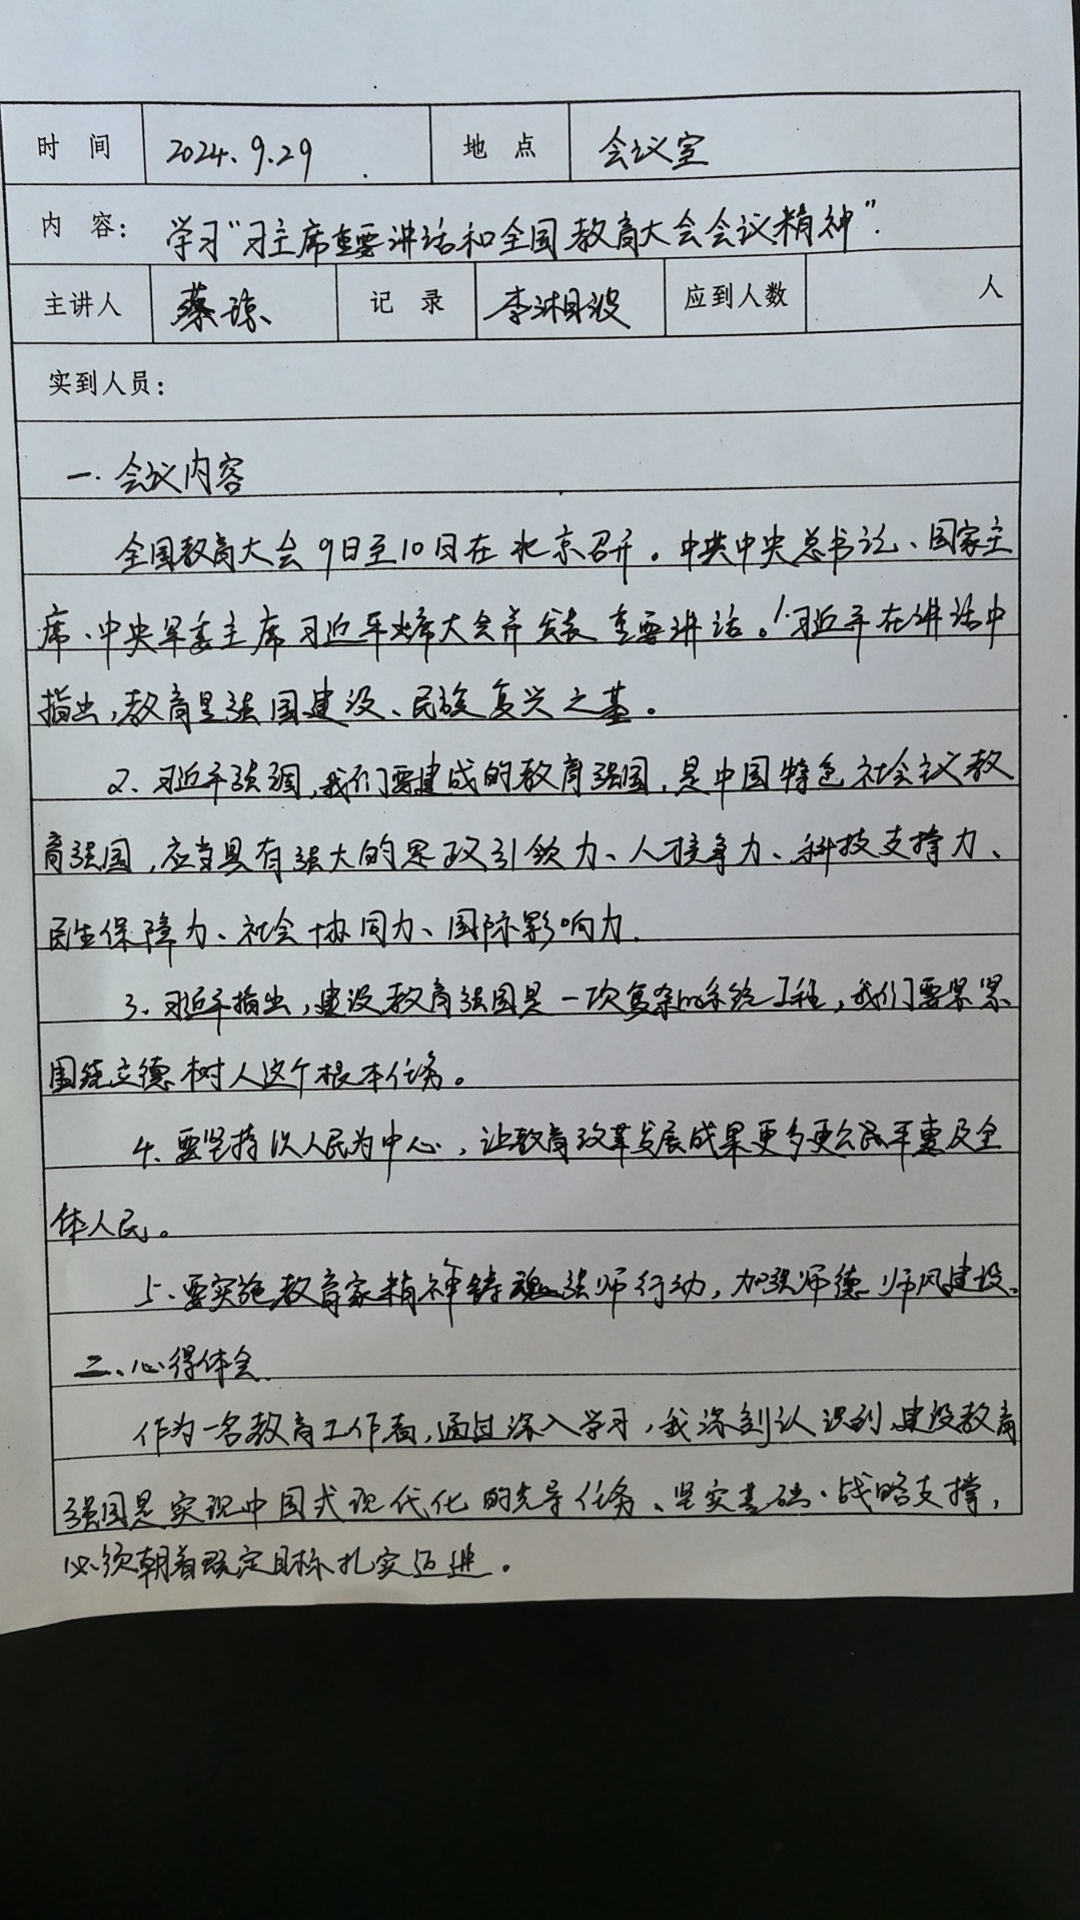 时 间 2024.9.29 地 点 会议室
内 容: 学习"习主席重要讲话和全国教育大会会议精神".
主讲人 蔡琼 记 录 李湘波 应到人数 人
实到人员:
一.会议内容
全国教育大会9日至10日在北京召开。中共中央总书记、国家主
席、中央军委主席习近平出席大会并发表重要讲话。1.习近平在讲话中
指出,教育是强国建设、民族复兴之基。
2、习近平强调,我们要建成的教育强国,是中国特色社会议教
育强国,应当具有强大的思政引领力、人才竞争力、科技支撑力、
民生保障力、社会协同力、国际影响力.
3、习近平指出,建设教育强国是一次复杂的系统工程,我们要紧紧
围绕立德树人这个根本任务。
4.要坚持以人民为中心,让教育改革发展成果更多更公平惠及全
体人民。
5、要实施教育家精神铸魂强师行动,加强师德师风建设、
二、心得体会
作为一名教育工作者,通过深入学习,我深刻认识到,建设教育
强国是实现中国式现代化的先导任务、坚实基础、战略支撑,
必须朝着既定目标扎实迈进。